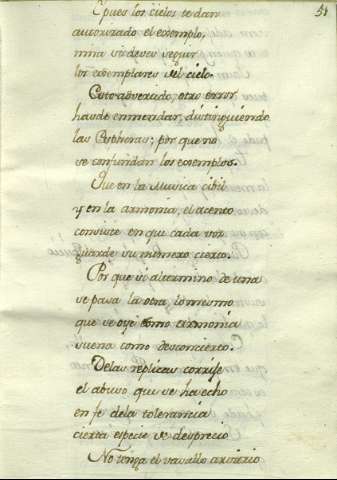 51
Epues los cielos te dan
autorizado el exemplo,
mira si deves seguir
los exemplares del cielo.
Esto advertido, otro error
has de enmendar, distinguiendo
las Espheras; por que no
se confundan los exemplos.
Que en la Musica cibil
y en la armonia, el acento
consiste en qui cada voz
guarde su numero cierto.
Por que si al termino de una
se pasa la otra, lo mismo
que se oye como armonia
suena como desconcierto.
Delas replicas corrije
el abuso, que se ha echo
en fe dela tolerancia
cierta especie de desprecio
No tenga el vasallo arvitrio